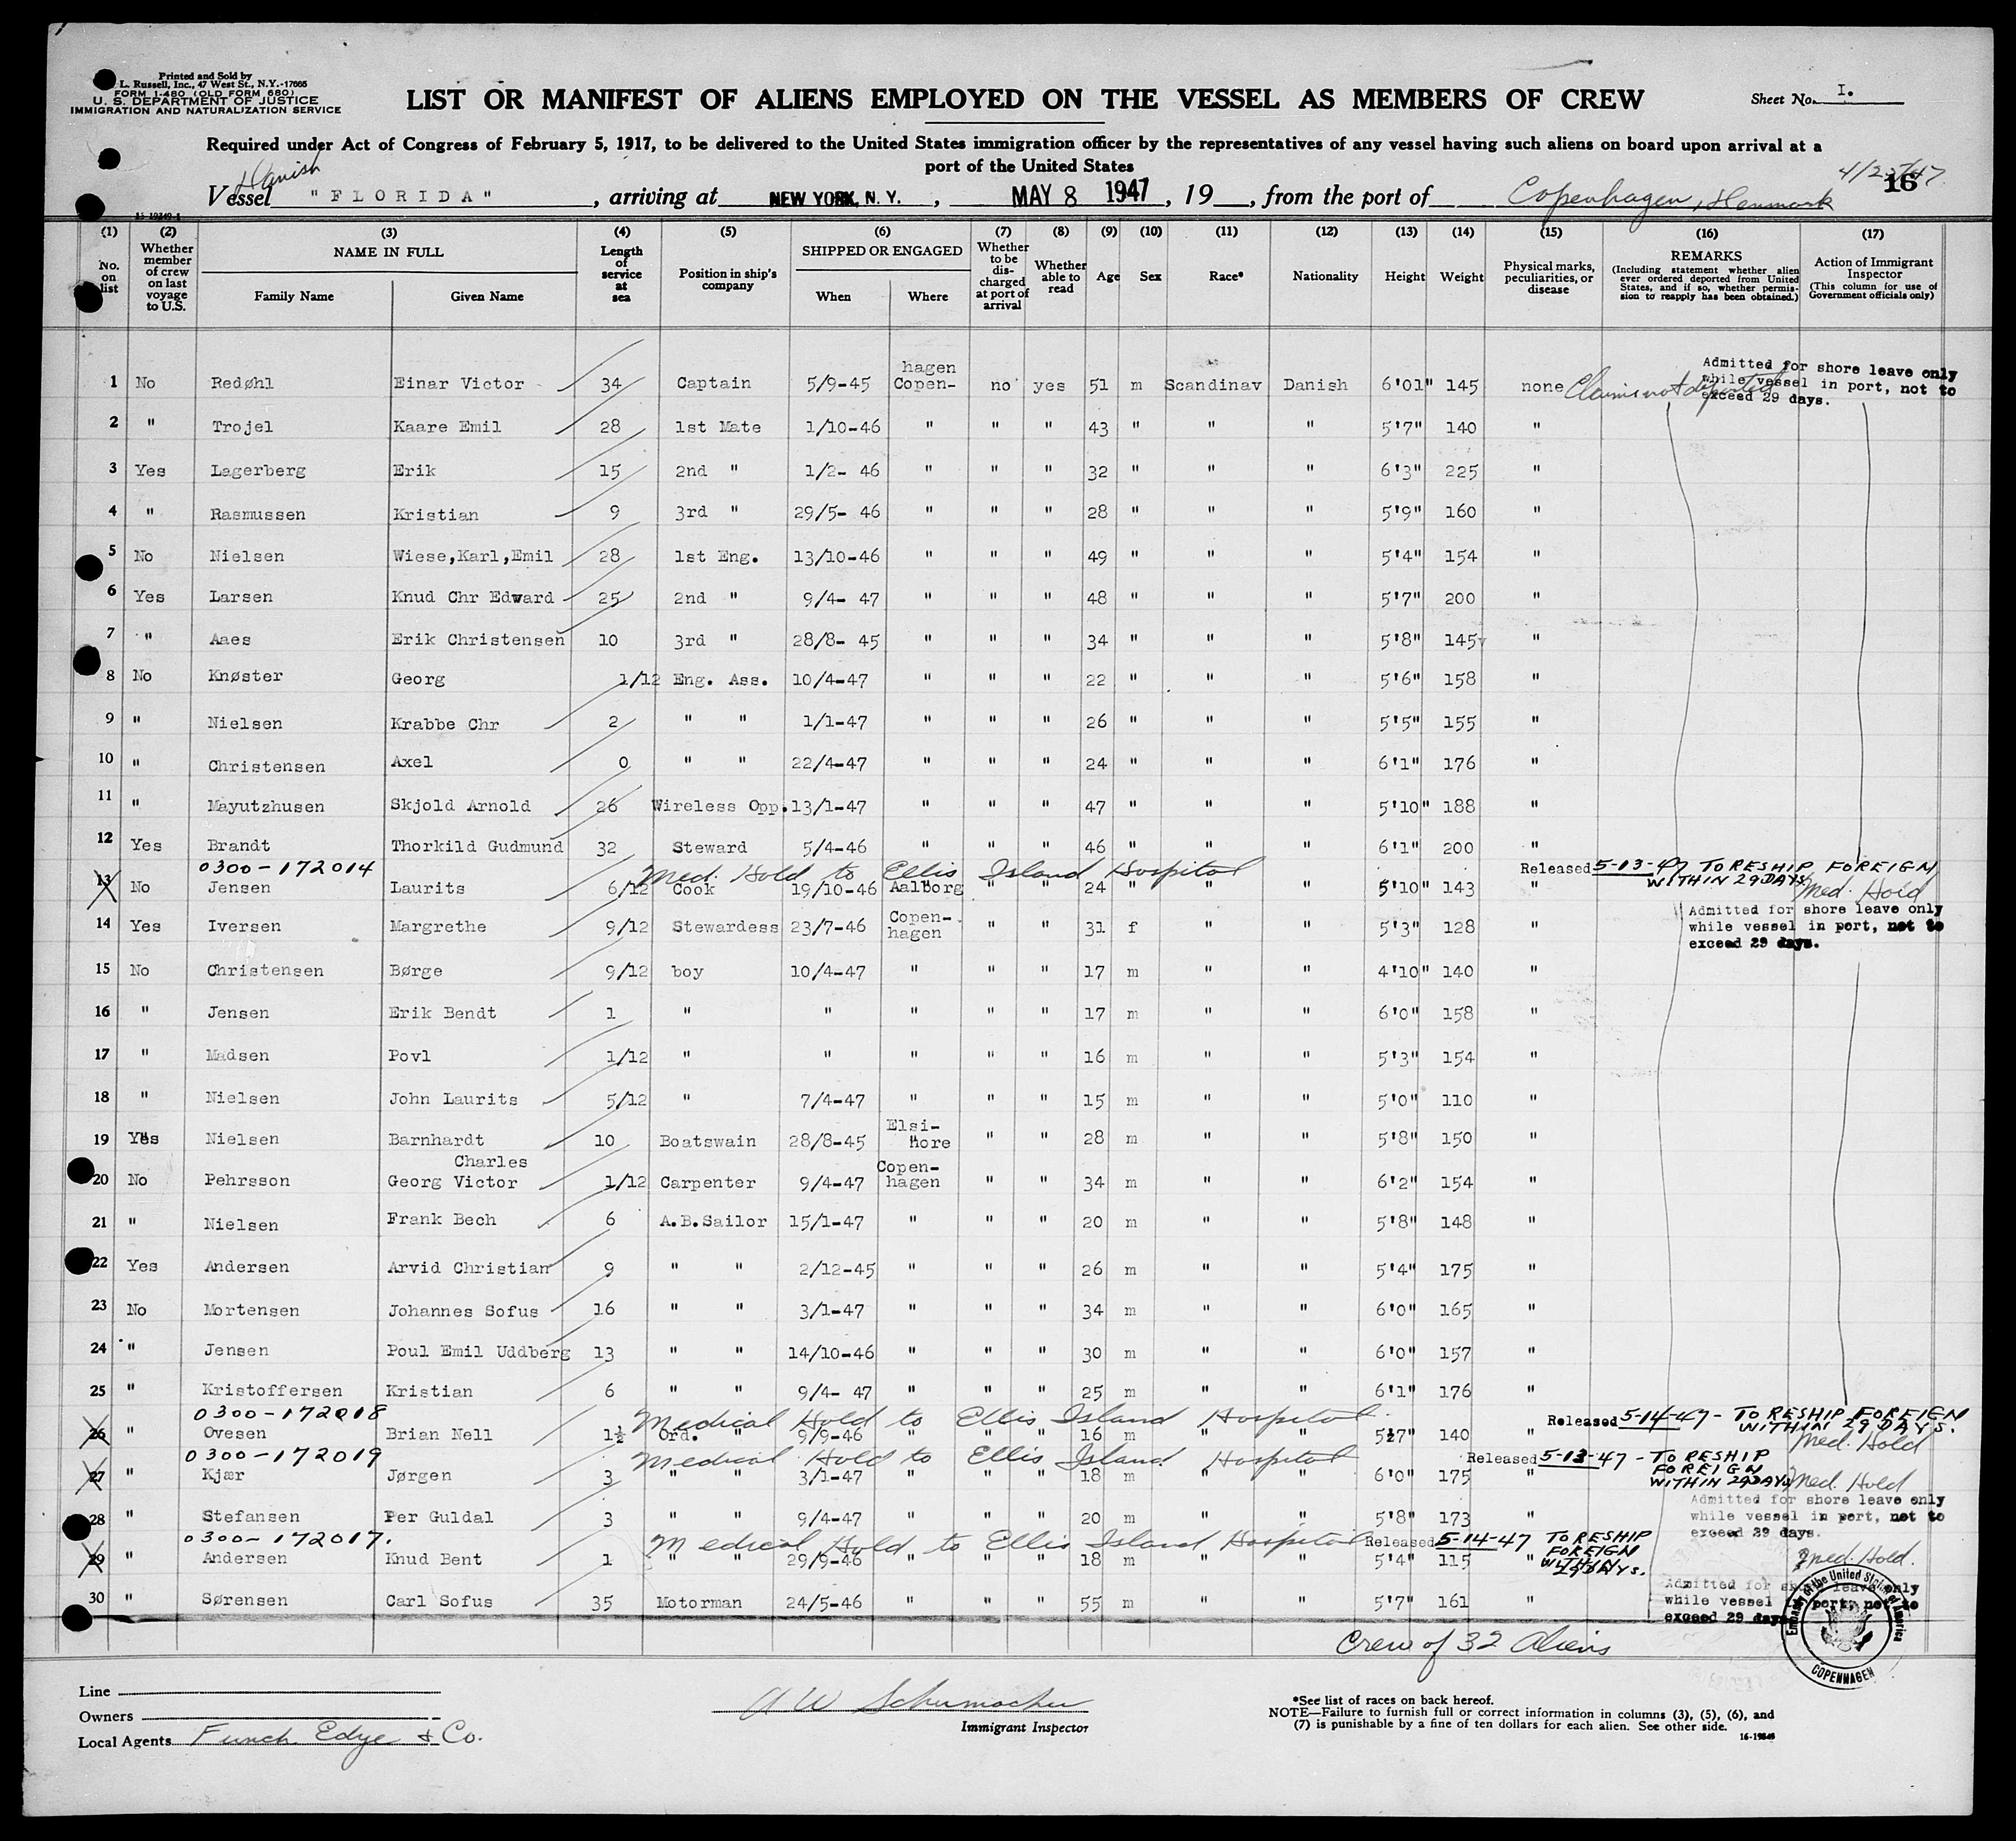 Printed and Sold by
L. Russell, Inc., 47 West St., N.Y.-17665
FORM I-480 (OLD FORM 680)
U. S. DEPARTMENT OF JUSTICE
IMMIGRATION AND NATURALIZATION SERVICE
LIST OR MANIFEST OF ALIENS EMPLOYED ON THE VESSEL AS MEMBERS OF CREW
Sheet No. I.
Required under Act of Congress of February 5, 1917, to be delivered to the United States immigration officer by the representatives of any vessel having such aliens on board upon arrival at a
port of the United States
Danish
Vessel "FLORIDA", arriving at NEW YORK, N. Y., MAY 8 1947, 19__, from the port of Copenhagen, Denmark
16
(1) No. on list
(2) Whether member of crew on last voyage to U.S.
(3) NAME IN FULL Family Name Given Name
(4) Length of service at sea
(5) Position in ship's company
(6) SHIPPED OR ENGAGED When Where
(7) Whether to be discharged at port of arrival
(8) Whether able to read
(9) Age
(10) Sex
(11) Race*
(12) Nationality
(13) Height
(14) Weight
(15) Physical marks, peculiarities, or disease
(16) REMARKS (Including statement whether alien ever ordered deported from United States, and if so, whether permission to reapply has been obtained.)
(17) Action of Immigrant Inspector (This column for use of Government officials only)
1 No Redøhl Einar Victor 34 Captain 5/9-45 Copenhagen no yes 51 m Scandinav Danish 6'01" 145 none Claims not deported Admitted for shore leave only while vessel in port, not to exceed 29 days.
2 " Trojel Kaare Emil 28 1st Mate 1/10-46 " " " 43 " " " 5'7" 140 "
3 Yes Lagerberg Erik 15 2nd " 1/2- 46 " " " 32 " " " 6'3" 225 "
4 " Rasmussen Kristian 9 3rd " 29/5- 46 " " " 28 " " " 5'9" 160 "
5 No Nielsen Wiese,Karl,Emil 28 1st Eng. 13/10-46 " " " 49 " " " 5'4" 154 "
6 Yes Larsen Knud Chr Edward 25 2nd " 9/4- 47 " " " 48 " " " 5'7" 200 "
7 " Aaes Erik Christensen 10 3rd " 28/8- 45 " " " 34 " " " 5'8" 145 "
8 No Knøster Georg 1/12 Eng. Ass. 10/4-47 " " " 22 " " " 5'6" 158 "
9 " Nielsen Krabbe Chr 2 " " 1/1-47 " " " 26 " " " 5'5" 155 "
10 " Christensen Axel 0 " " 22/4-47 " " " 24 " " " 6'1" 176 "
11 " Mayutzhusen Skjold Arnold 26 Wireless Opp. 13/1-47 " " " 47 " " " 5'10" 188 "
12 Yes Brandt Thorkild Gudmund 32 Steward 5/4-46 " " " 46 " " " 6'1" 200 "
0300-172014 Med. Hold to Ellis Island Hospital Released 5-13-47 TO RESHIP FOREIGN WITHIN 29 DAYS
13 No Jensen Laurits 6/12 Cook 19/10-46 Aalborg " " 24 " " " 5'10" 143 " Med. Hold
14 Yes Iversen Margrethe 9/12 Stewardess 23/7-46 Copenhagen " " 31 f " " 5'3" 128 " Admitted for shore leave only while vessel in port, not to exceed 29 days.
15 No Christensen Børge 9/12 boy 10/4-47 " " " 17 m " " 4'10" 140 "
16 " Jensen Erik Bendt 1 " " " " " 17 m " " 6'0" 158 "
17 " Madsen Povl 1/12 " " " " " 16 m " " 5'3" 154 "
18 " Nielsen John Laurits 5/12 " 7/4-47 " " " 15 m " " 5'0" 110 "
19 Yes Nielsen Barnhardt 10 Boatswain 28/8-45 Elsi-more " " 28 m " " 5'8" 150 "
20 No Pehrsson Georg Victor Charles 1/12 Carpenter 9/4-47 Copenhagen " " 34 m " " 6'2" 154 "
21 " Nielsen Frank Bech 6 A.B.Sailor 15/1-47 " " " 20 m " " 5'8" 148 "
22 Yes Andersen Arvid Christian 9 " " 2/12-45 " " " 26 m " " 5'4" 175 "
23 No Mortensen Johannes Sofus 16 " " 3/1-47 " " " 34 m " " 6'0" 165 "
24 " Jensen Poul Emil Uddberg 13 " " 14/10-46 " " " 30 m " " 6'0" 157 "
25 " Kristoffersen Kristian 6 " " 9/4- 47 " " " 25 m " " 6'1" 176 "
0300-172018 Medical Hold to Ellis Island Hospital Released 5-14-47 - TO RESHIP FOREIGN WITHIN 29 DAYS.
26 " Ovesen Brian Nell 1½ Ord. " 9/9-46 " " " 16 m " " 5½7" 140 " Med. Hold
0300-172019 Medical Hold to Ellis Island Hospital Released 5-13-47 - TO RESHIP FOREIGN WITHIN 29 DAYS
27 " Kjær Jørgen 3 " " 3/1-47 " " " 18 m " " 6'0" 175 " Med. Hold
28 " Stefansen Per Guldal 3 " " 9/4-47 " " " 20 m " " 5'8" 173 " Admitted for shore leave only while vessel in port, not to exceed 29 days.
0300-172017. Medical Hold to Ellis Island Hospital Released 5-14-47 TO RESHIP FOREIGN WITHIN 29 DAYS.
29 " Andersen Knud Bent 1 " " 29/9-46 " " " 18 m " " 5'4" 115 " Med. Hold.
30 " Sørensen Carl Sofus 35 Motorman 24/5-46 " " " 55 m " " 5'7" 161 " Admitted for shore leave only while vessel in port, not to exceed 29 days
Crew of 32 Aliens
Embassy of the United States of America COPENHAGEN
Line
Owners
Local Agents Funch Edye & Co.
A W Schumacher
Immigrant Inspector
*See list of races on back hereof.
NOTE—Failure to furnish full or correct information in columns (3), (5), (6), and
(7) is punishable by a fine of ten dollars for each alien. See other side.
16-19849